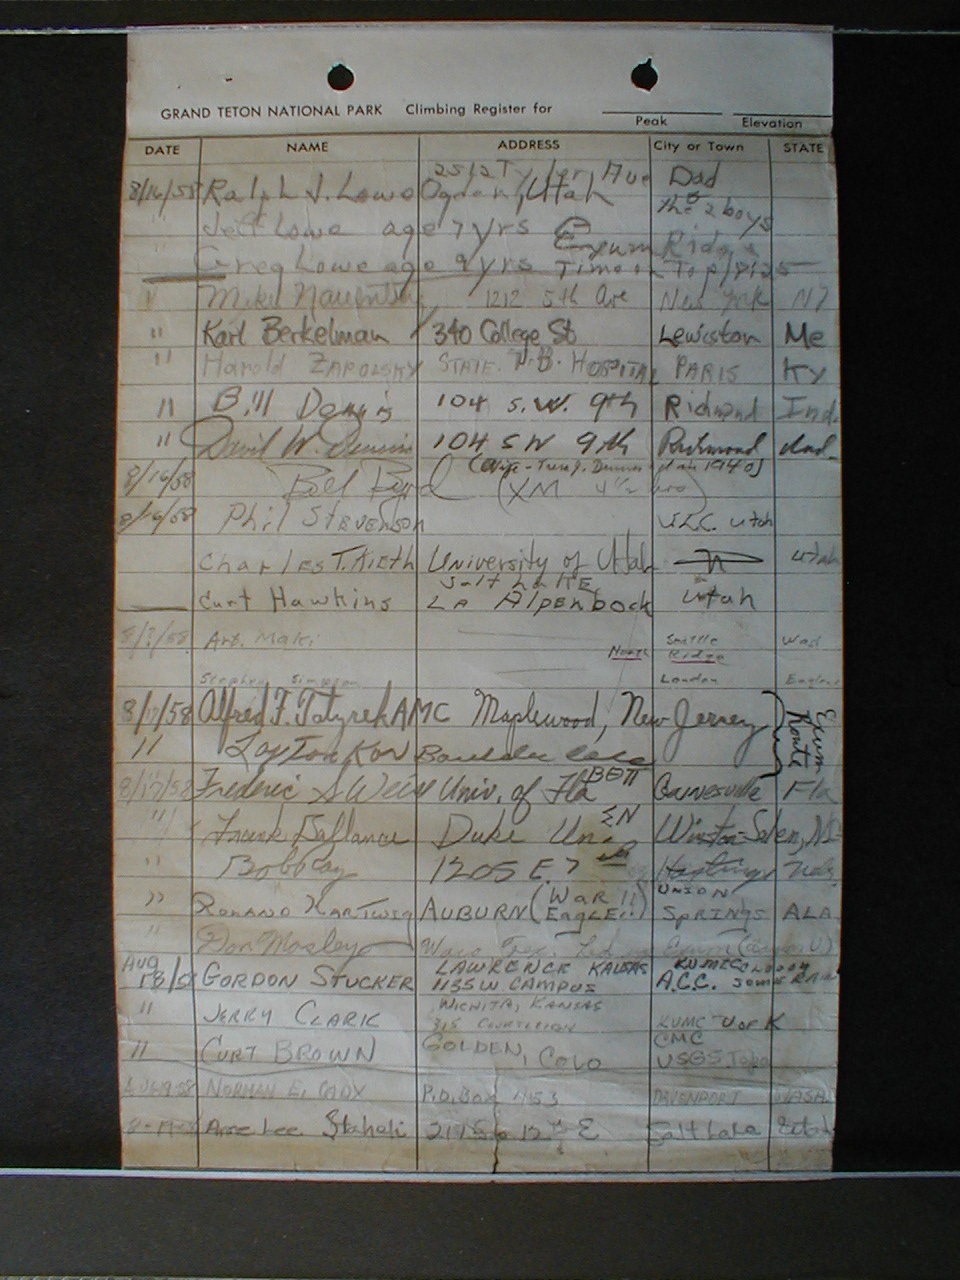 GRAND TETON NATIONAL PARK Climbing Register for
Peak Elevation
DATE NAME ADDRESS City or Town STATE
2512 Tyler Ave Dad
8/16/58 Ralph J. Lowe Ogden, Utah the 2 boys
" Jeff Lowe age 7 yrs Exum Ridge
" Greg Lowe age 9 yrs Time on Top 1:25
" Mike 1212 5th Ave New York NY
" Karl Berkelman 340 College St Lewiston Me
" Harold ZAPOLSKY STATE T.B. HOSPITAL PARIS KY
" Bill Dennis 104 S.W. 9th Richmond Ind.
" David W. Dennis 104 SW 9th Richmond Ind.
8/16/58 Bill Byrd (XM 4 1/2 hrs)
8/16/58 Phil STEVENSON S.L.C. Utah
Charles T. University of Utah " Utah
Salt Lake
Curt Hawkins LA Alpenbock Utah
8/?/58 Art Maki Seattle Wash
North Ridge
Stephen Simpson London England
8/17/58 Alfred F. Tatyrek AMC Maplewood, New Jersey Exum Route
" Layton Kor Boulder Colo
ΒΘΠ
8/17/58 Frederic S Weil Univ. of Fla Gainesville Fla
ΣN
" Frank Ballance Duke Un. Winston-Salem, NC
" Bob Ray 1205 E. 7th Hastings Neb.
" ROMANO HARTWIG AUBURN (WAR EAGLE!!) UNION SPRINGS ALA
" Don Mosley Waco Tex.
AUG LAWRENCE KANSAS KUMC CLOUDY
18/58 GORDON STUCKER 1135 W CAMPUS A.C.C. SOME RAIN
WICHITA, KANSAS
" JERRY CLARK 315 COURTLEIGH KUMC - U of K
CMC
" CURT BROWN GOLDEN, COLO USGS Topo
AUG 19 58 NORMAN E. CADY P.O. Box 453 DAVENPORT WASH
8-19-58 Lee Staheli 12th E Salt Lake Utah